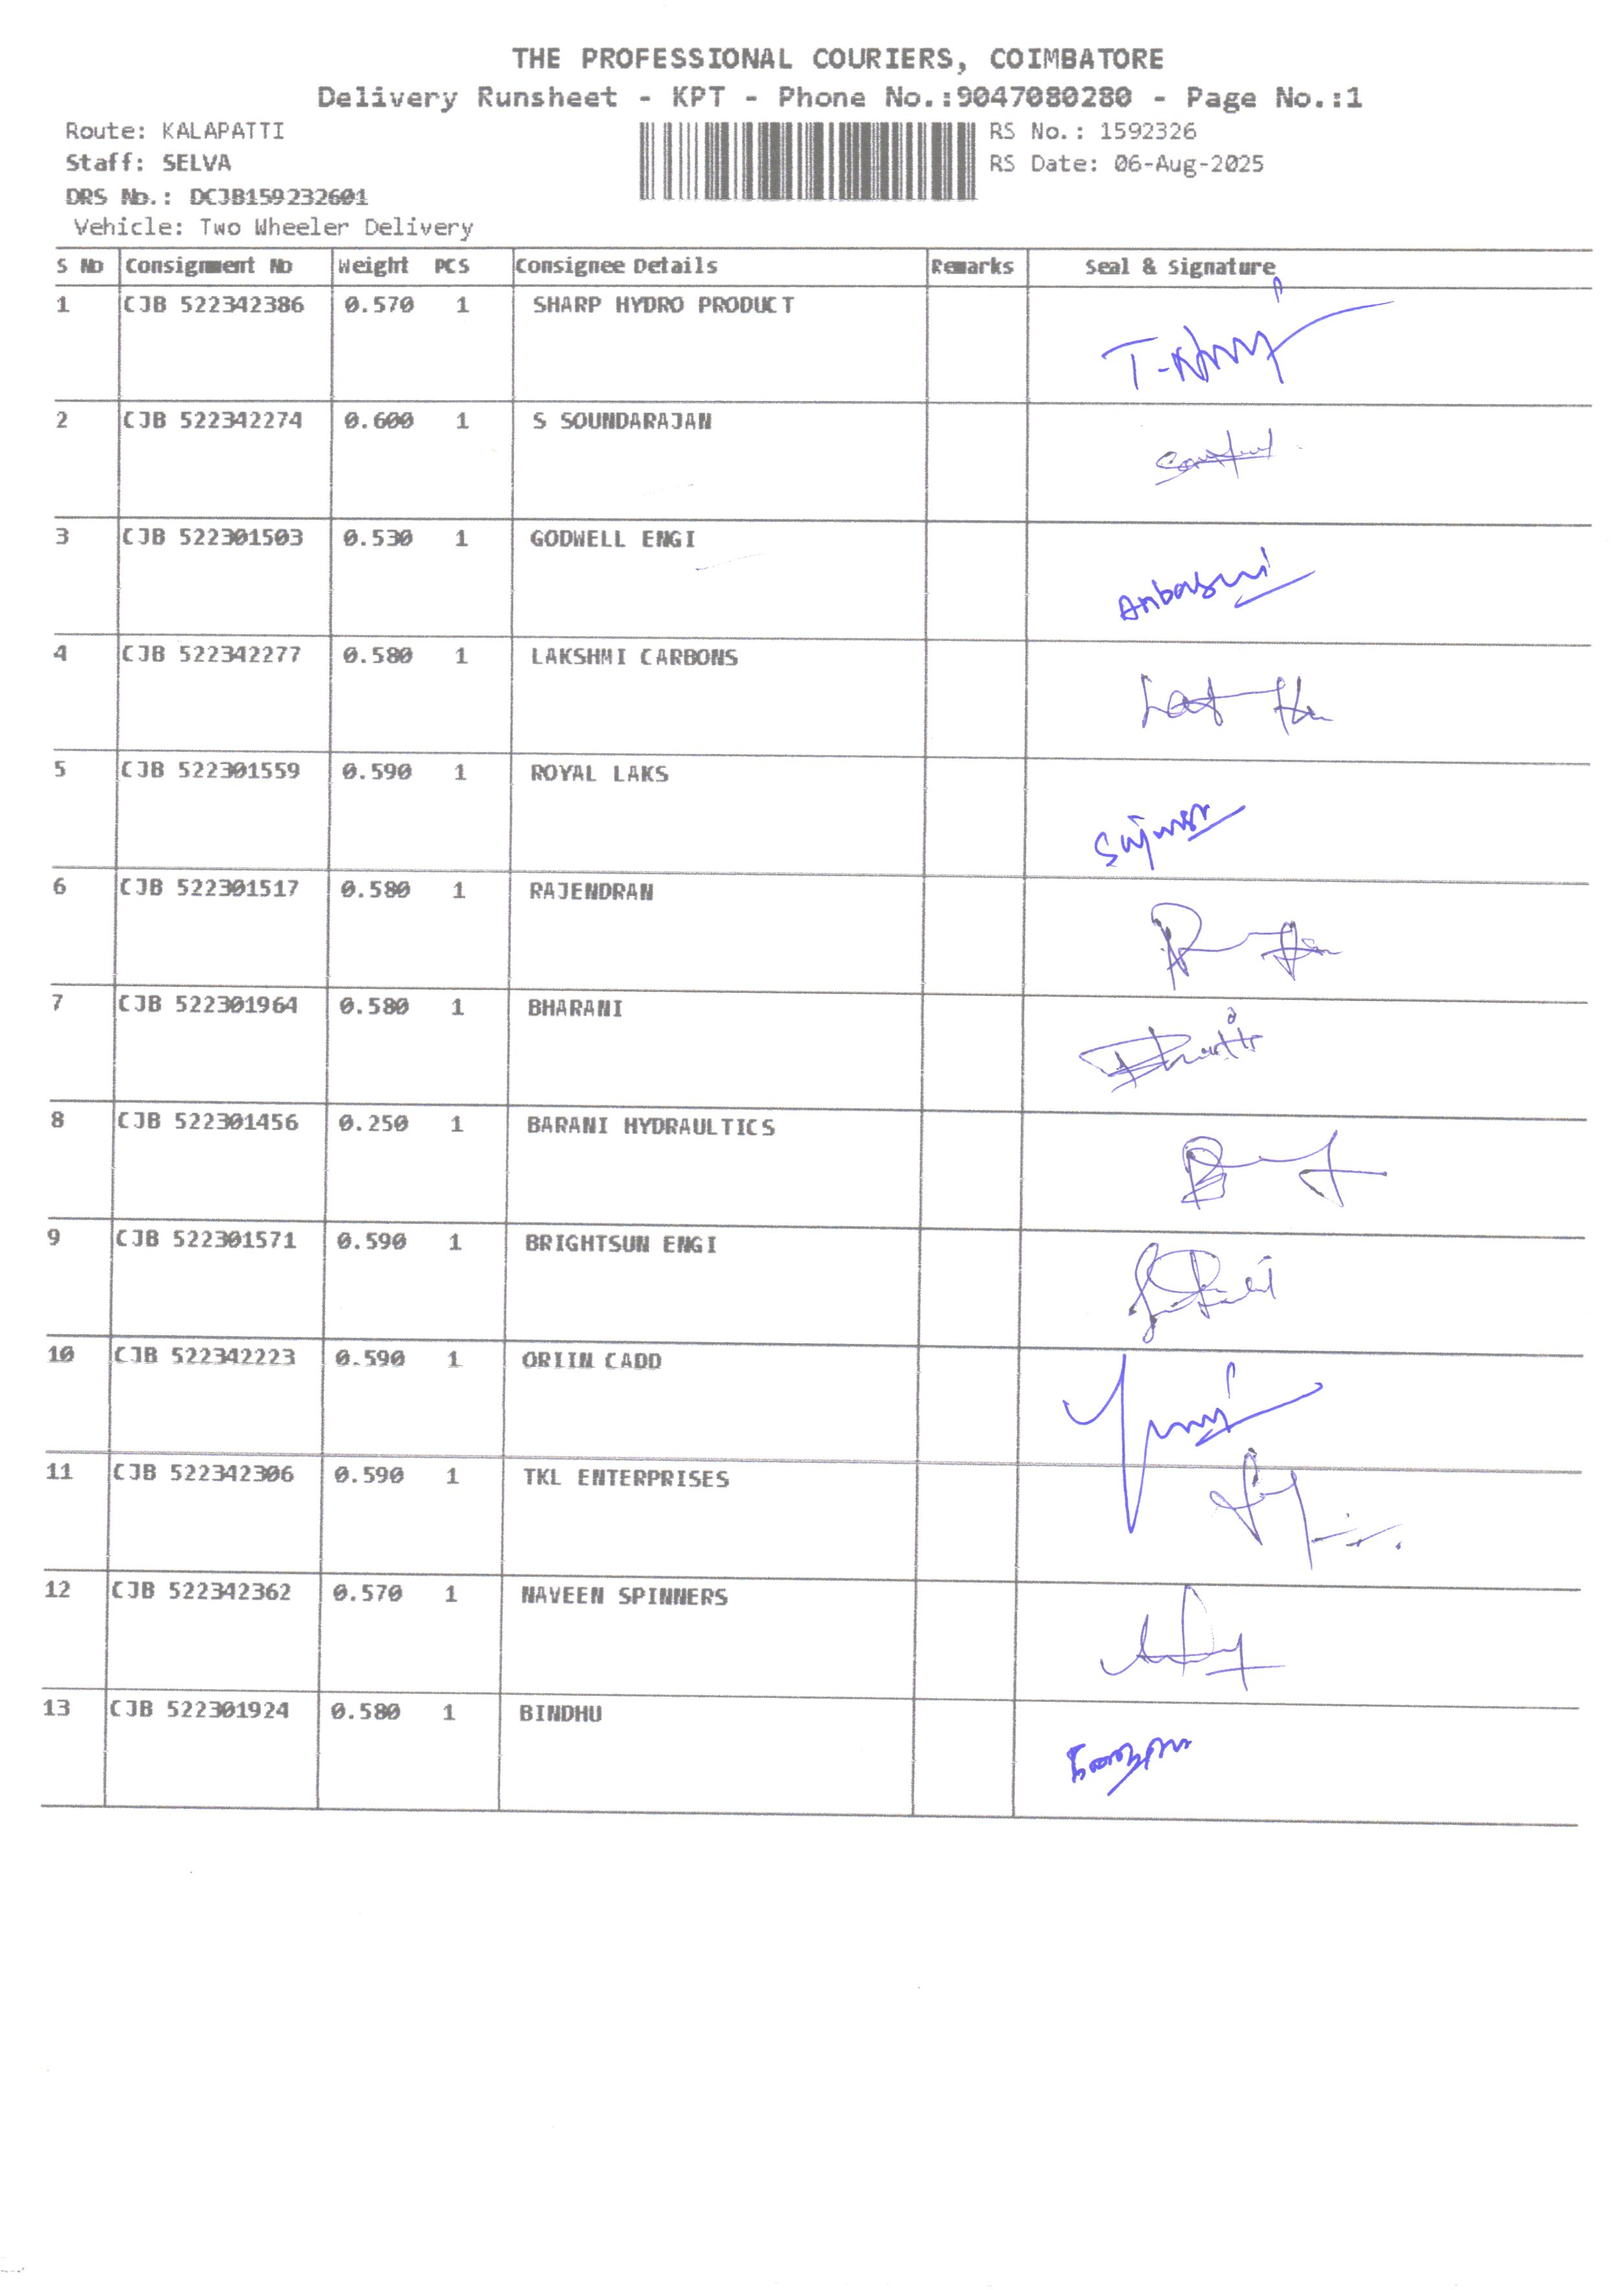 THE PROFESSIONAL COURIERS, COIMBATORE
Delivery Runsheet - KPT - Phone No.:9047080280 - Page No.:1
Route: KALAPATTI RS No.: 1592326
Staff: SELVA RS Date: 06-Aug-2025
DRS No.: DCJB159232601
Vehicle: Two Wheeler Delivery
S No Consignment No Weight PCS Consignee Details Remarks Seal & Signature
1 CJB 522342386 0.570 1 SHARP HYDRO PRODUCT
2 CJB 522342274 0.600 1 S SOUNDARAJAN
3 CJB 522301503 0.530 1 GODWELL ENGI
4 CJB 522342277 0.580 1 LAKSHMI CARBONS
5 CJB 522301559 0.590 1 ROYAL LAKS
6 CJB 522301517 0.580 1 RAJENDRAN
7 CJB 522301964 0.580 1 BHARANI
8 CJB 522301456 0.250 1 BARANI HYDRAULTICS
9 CJB 522301571 0.590 1 BRIGHTSUN ENGI
10 CJB 522342223 0.590 1 ORIIN CADD
11 CJB 522342306 0.590 1 TKL ENTERPRISES
12 CJB 522342362 0.570 1 NAVEEN SPINNERS
13 CJB 522301924 0.580 1 BINDHU